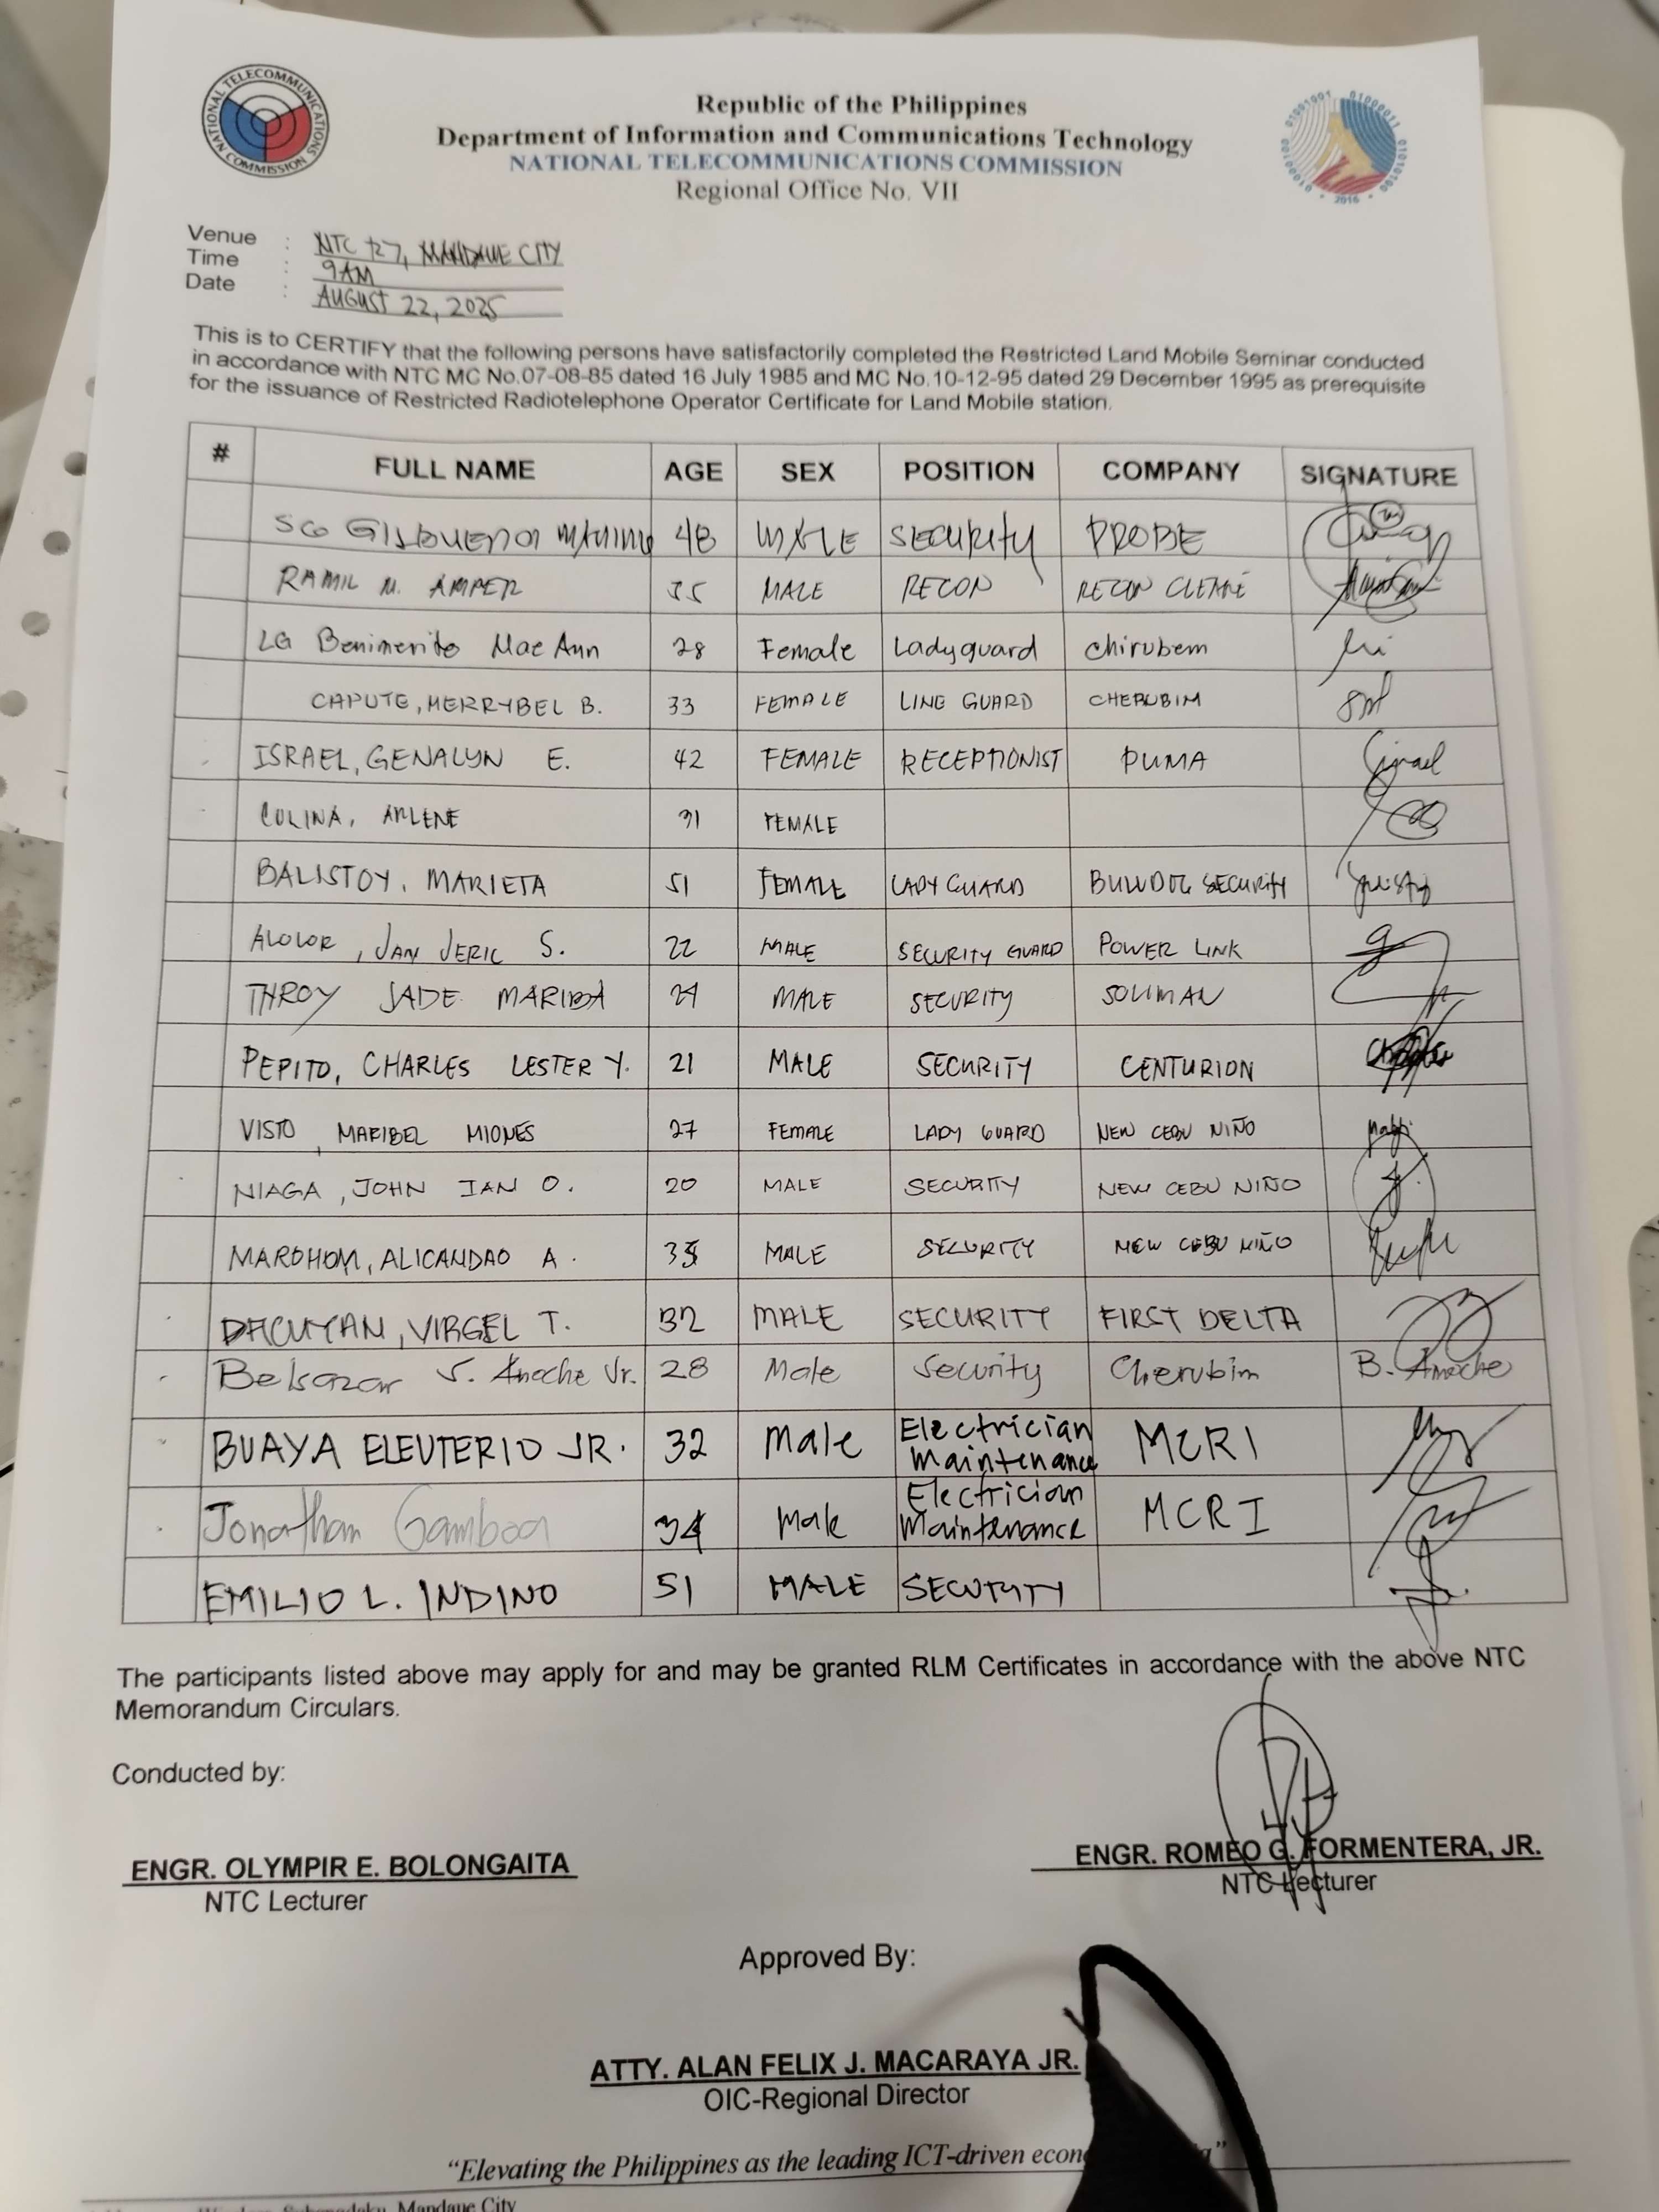 NATIONAL TELECOMMUNICATIONS COMMISSION
Republic of the Philippines
Department of Information and Communications Technology
NATIONAL TELECOMMUNICATIONS COMMISSION
Regional Office No. VII
2016
Venue : NTC R7, MANDAUE CITY
Time : 9AM
Date : AUGUST 22, 2025
This is to CERTIFY that the following persons have satisfactorily completed the Restricted Land Mobile Seminar conducted
in accordance with NTC MC No.07-08-85 dated 16 July 1985 and MC No.10-12-95 dated 29 December 1995 as prerequisite
for the issuance of Restricted Radiotelephone Operator Certificate for Land Mobile station.
# FULL NAME AGE SEX POSITION COMPANY SIGNATURE
SG 48 MALE SECURITY PROBE
RAMIL M. AMPER 35 MALE RECON RECON
LG Benimerito Mae Ann 28 Female Ladyguard chirubem
CAPUTE, MERRYBEL B. 33 FEMALE LINE GUARD CHERUBIM
ISRAEL, GENALYN E. 42 FEMALE RECEPTIONIST PUMA
COLINA, ARLENE 31 FEMALE
BALISTOY, MARIETA 51 FEMALE LADY GUARD BULLDOG SECURITY
JAN JERIC S. 22 MALE SECURITY GUARD POWER LINK
THROY JADE 21 MALE SECURITY SOLIMAN
PEPITO, CHARLES LESTER Y. 21 MALE SECURITY CENTURION
VISTO, MARIBEL MIONES 27 FEMALE LADY GUARD NEW CEBU NIÑO
NIAGA, JOHN IAN O. 20 MALE SECURITY NEW CEBU NIÑO
MAROHOM, ALICANDAO A. MALE SECURITY NEW CEBU NIÑO
DACUYAN, VIRGEL T. 32 MALE SECURITY FIRST DELTA
Belsazar S. Anoche Jr. 28 Male Security Cherubim B. Anoche
BUAYA ELEUTERIO JR. 32 Male Electrician Maintenance MCRI
Jonathan Gamboa 34 Male Electrician Maintenance MCRI
EMILIO L. INDINO 51 MALE SECURITY
The participants listed above may apply for and may be granted RLM Certificates in accordance with the above NTC
Memorandum Circulars.
Conducted by:
ENGR. OLYMPIR E. BOLONGAITA ENGR. ROMEO G. FORMENTERA, JR.
NTC Lecturer NTC Lecturer
Approved By:
ATTY. ALAN FELIX J. MACARAYA JR.
OIC-Regional Director
"Elevating the Philippines as the leading ICT-driven
Mandaue City